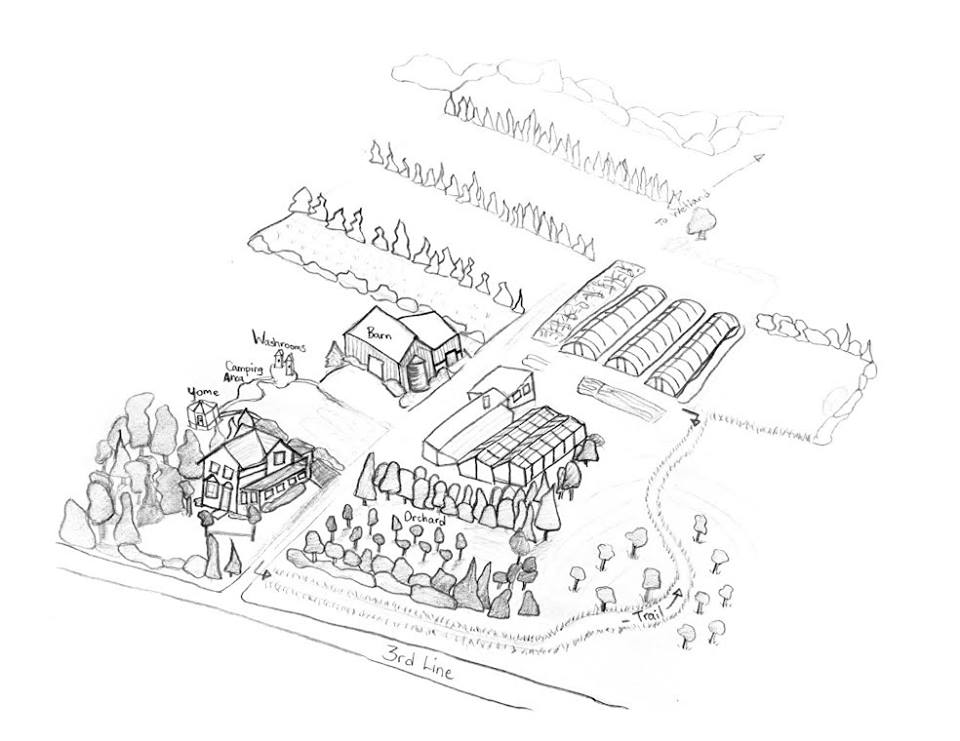 To Wetland
Barn
Washrooms
Camping
Area
Yome
Orchard
- Trail
3rd Line